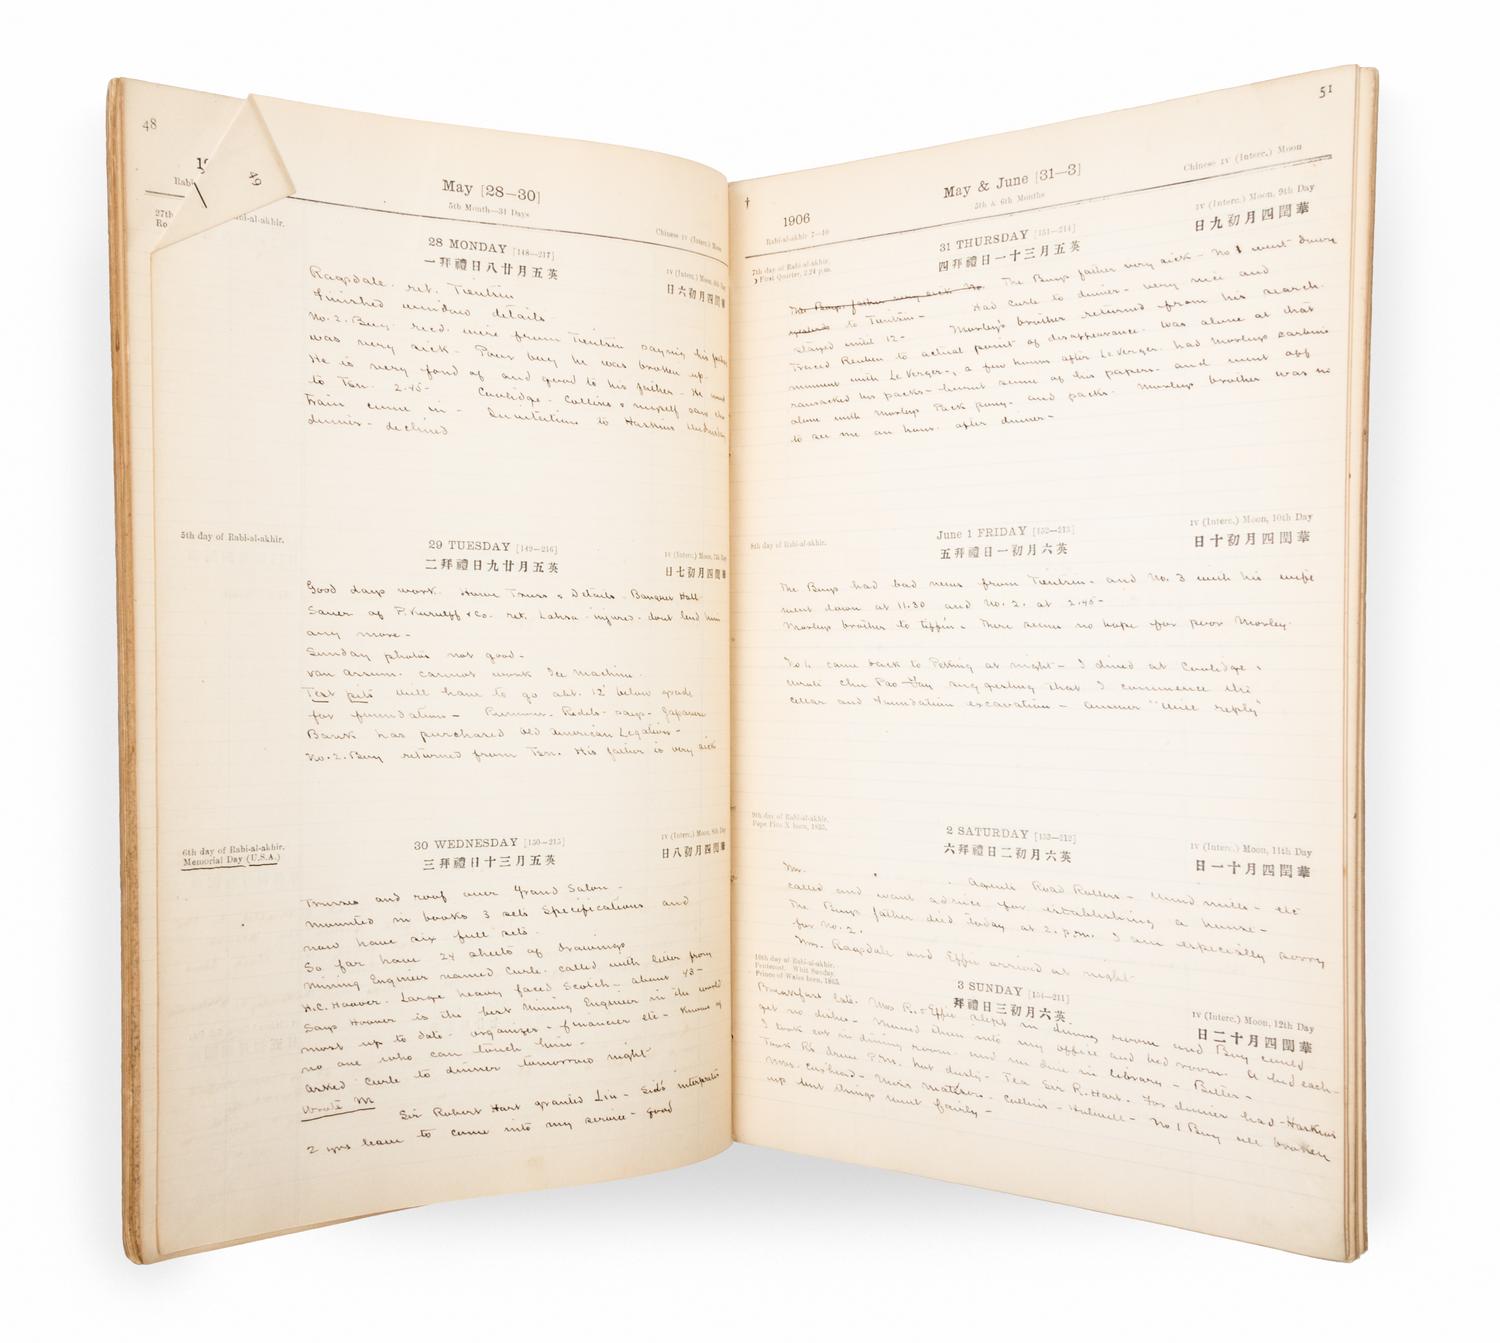 48
49
May [28—30]
5th Month—31 Days
Chinese IV (Interc.) Moon
27th
Rabi-al-akhir.
28 MONDAY [148—217]
一拜禮日八廿月五英
IV (Interc.) Moon, 6th Day
日六初月四閏華
Ragsdale ret. Tientsin
Finished window details
No. 2. Boy recd. wire from Tientsin saying his father
was very sick - Poor boy he was broken up.
He is very fond of and good to his father - He went
to Tsn. 2.45- Coolidge - Collins & myself saw the
train come in - Invitation to Haskins Wednesday
dinner - declined
5th day of Rabi-al-akhir.
29 TUESDAY [149—216]
二拜禮日九廿月五英
IV (Interc.) Moon, 7th Day
日七初月四閏華
Good days work. Home Truss & Details - Banquet Hall
Sauer of P. Kierulff & Co. ret. Lahsa - injured - dont lend him
any more -
Sunday photos not good -
Van Arsum. cannot work Ice Machine.
Test pits will have to go abt. 12' below grade
for foundation - says - Japanese
Bank has purchased old American Legation -
No. 2. Boy returned from Tsn. His father is very sick
6th day of Rabi-al-akhir.
Memorial Day (U.S.A.)
30 WEDNESDAY [150—215]
三拜禮日十三月五英
IV (Interc.) Moon, 8th Day
日八初月四閏華
Trusses and roof over Grand Salon -
Mounted in books 3 sets Specifications and
now have six full sets.
So far have 24 sheets of drawings
Mining Engineer named Curle. called with letter from
H.C. Hoover. Large heavy faced Scotch - about 43-
Says Hoover is the best Mining Engineer in the world
most up to date - organizer - financier etc - Knows of
no one who can touch him -
Asked Curle to dinner tomorrow night
Wrote M
Sir Robert Hart granted Liu - Sid's interpreter
2 yrs leave to come into my service - Good
51
†
1906
Rabi-al-akhir 7—10
May & June [31—3]
5th & 6th Months
Chinese IV (Interc.) Moon
7th day of Rabi-al-akhir.
First Quarter, 2.24 p.m.
31 THURSDAY [151—214]
四拜禮日一十三月五英
IV (Interc.) Moon, 9th Day
日九初月四閏華
The Boys father very sick No. The Boys father very sick - No 1 went down
to Tientsin - Had Curle to dinner - very nice and
stayed until 12 - Morley's brother returned from his search.
Traced Reuben to actual point of disappearance. Was alone at that
moment with LeVerger -, a few hours after LeVerger. had Morleys carbine
ransacked his packs - burnt some of his papers - and went off
alone with Morleys Pack pony - and packs. Morleys brother was in
to see me an hour. after dinner -
8th day of Rabi-al-akhir.
June 1 FRIDAY [152—213]
五拜禮日一初月六英
IV (Interc.) Moon, 10th Day
日十初月四閏華
The Boys had bad news from Tientsin - and No. 3 with his wife
went down at 11.30 and No. 2. at 2.45-
Morleys brother to tiffin - There seems no hope for poor Morley.
No 4 came back to Peking at night - I dined at Coolidge's
Wrote Chu Pao Fay suggesting that I commence the
cellar and foundation excavation - answer "Will reply"
9th day of Rabi-al-akhir.
Pope Pius X born, 1835.
2 SATURDAY [153—212]
六拜禮日二初月六英
IV (Interc.) Moon, 11th Day
日一十月四閏華
Mr. Agents Road Rollers - Wind mills - etc
called and want advice for establishing a house -
The Boys father died today at 2. p.m. I am especially sorry
for No. 2.
Mrs. Ragsdale and Effie arrived at night
10th day of Rabi-al-akhir.
Pentecost. Whit Sunday.
Prince of Wales born, 1865.
3 SUNDAY [154—211]
拜禮日三初月六英
IV (Interc.) Moon, 12th Day
日二十月四閏華
Breakfast late. Mrs R. & Effie slept in dining room and Boy could
get no dishes - Moved them into my office and bed room. & bed each -
I look out in dining room - and no. one in library - Better -
Took Rs drive P.M. hot dusty - Tea Sir R. Hart. For dinner had - Haskins
Mrs. Cushard - Miss Collins - - No 1 Boy all broken
up but things went fairly -